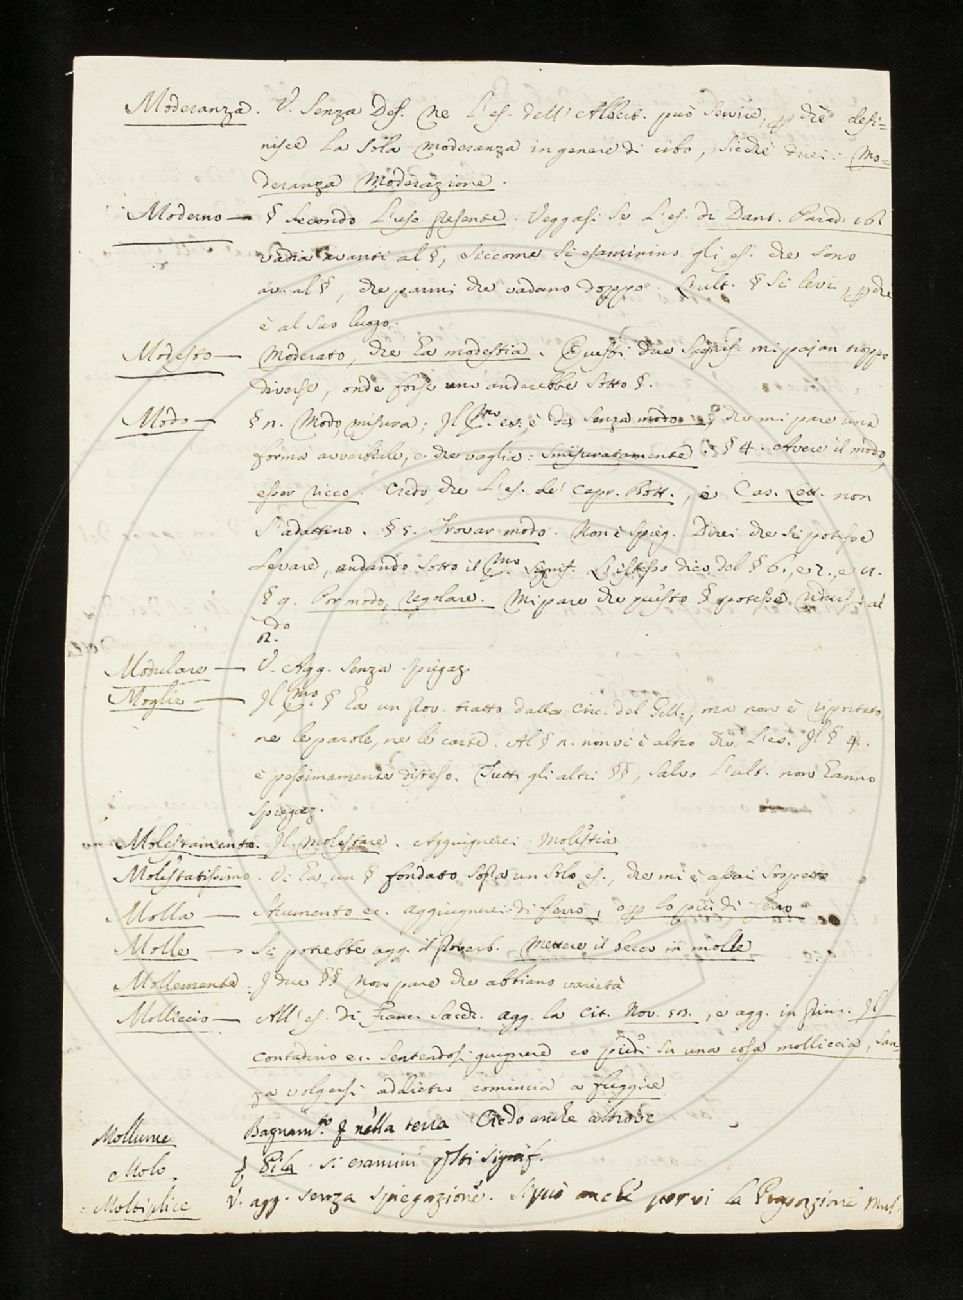 Moderanza. V. Senza Def. Ne L'es. dell'Albert. può servire, chè defi=
nisce la sola moderanza in genere di cibo, sicchè direi: Mo=
deranza Moderazione.
Moderno — § secondo L'uso presente. Veggasi se L'es. di Dant. Parad. 16.
vadia avanti al §, siccome si esaminino gli es. che sono
av. al §, che parmi che vadano doppo. L'ult. § si levi, che
è al suo luogo.
Modesto — Moderato, che ha modestia. Questi due signif. mi pajon troppo
diversi, onde forse uno anderebbe sotto §.
Modo — § n. Modo, misura; Il Pmo es. è di senza modo, che mi pare una
forma avverbiale, e che vaglia: smisuratamente. § 4. Avere il modo,
esser ricco. Credo che L'es. de' Capr. Bott., e Cas. Lett. non
s'adattino. § 5. Trovar modo. Non è spieg. Direi che si potesse
Levare, andando sotto il Pmo signif. L'istesso dico del § 6., e 7., e 4.
§ 9. Por modo, regolare. Mi pare che questo § potesse ridursi al
2.do
Modulare — V. Agg. senza spiegaz.
Moglie — Il Pmo § ha un prov. tratto dalla Circ. del Gell., ma non è riportato,
ne le parole, ne le carte. Al § n. non vi è altro che L'es. Il § 4.
è pessimamente disteso. Tutti gli altri §§, salvo L'ult. non hanno
spiegaz.
Molestamento. Il molestare. Aggiugnerei: molestia
Molestatissimo. Vi ha un § fondato sopra un solo es., che mi è assai sospetto
Molla — Strumento ec. aggiugnerei: di ferro, o per lo più di ferro
Molle — Si potrebbe agg. il proverb. Mettere il becco in molle
Mollemente. I due §§ non pare che abbiano varietà
Molliccio — All'es. di Franc. Sacch. agg. la Cit. Nov. 53., e agg. in princ. Il
contadino ec. sentendosi giugnere co piedi su una cosa molliccia, san=
za volgersi addietro comincia a fuggire
Mollume Bagnam.to nella terra Credo anche altrove
Molo § Pila. Si esamini questi signif.
Moltiplice V. agg. senza spiegazione. Si può anche porvi la Proporzione Mul=